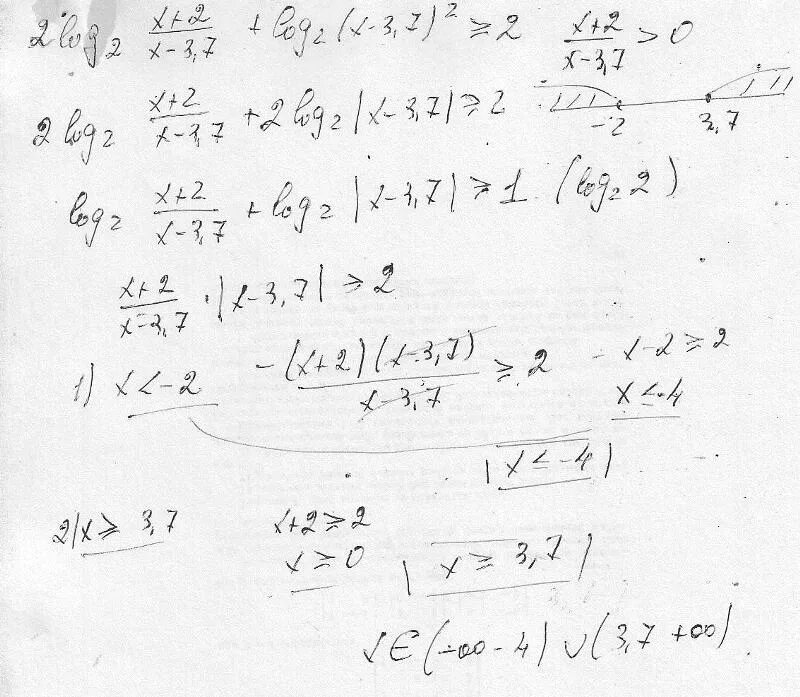 2log₂ (x+2)/(x-3,7) + log₂(x-3,7)² ≥ 2   (x+2)/(x-3,7) > 0
2log₂ (x+2)/(x-3,7) + 2log₂|x-3,7| ≥ 2   -2   3,7
log₂ (x+2)/(x-3,7) + log₂|x-3,7| ≥ 1 (log₂2)
(x+2)/(x-3,7) · |x-3,7| ≥ 2
1) x < -2   -(x+2)(x-3,7)/(x-3,7) ≥ 2   -x-2 ≥ 2
x ≤ -4
| x ≤ -4 |
2) x ≥ 3,7   x+2 ≥ 2
x ≥ 0   | x ≥ 3,7 |
x ∈ (-∞ -4) ∪ (3,7 +∞)